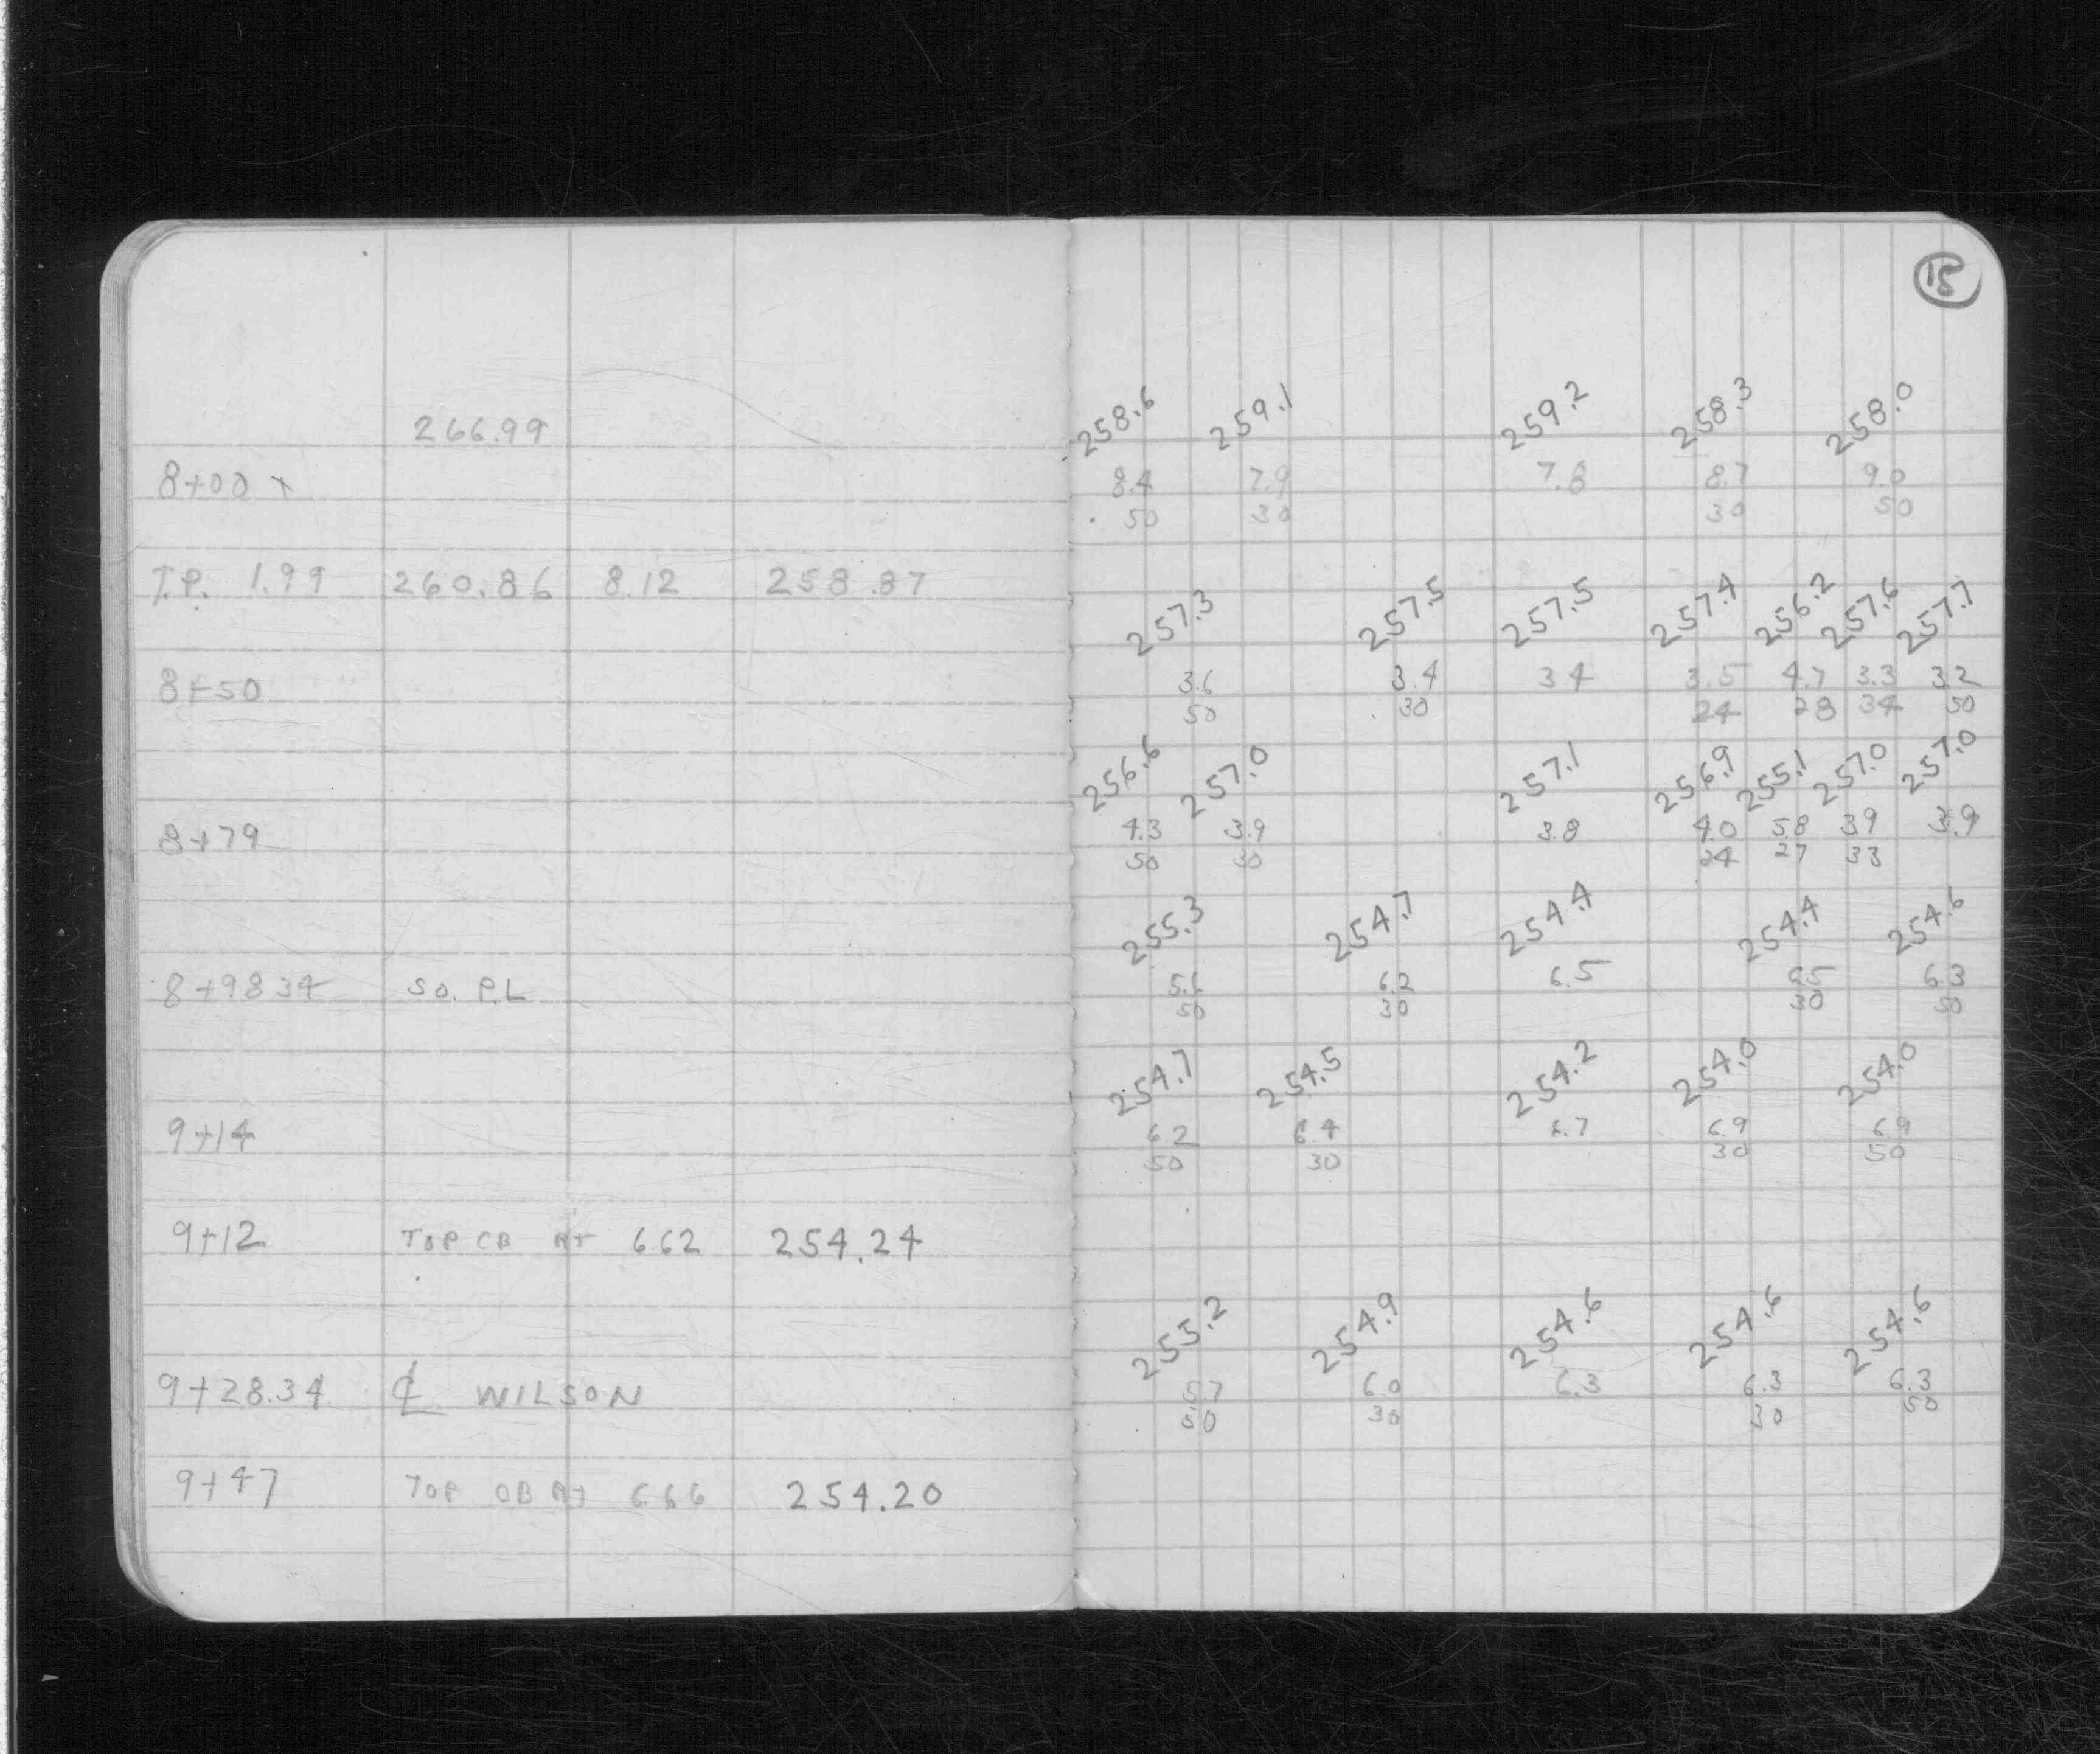 18
266.99
258.6 259.1 259.2 258.3 258.0
8+00 8.4 7.9 7.8 8.7 9.0
50 30 30 50
T.P. 1.99 260.86 8.12 258.87
257.3 257.5 257.5 257.4 256.2 257.6 257.7
8+50 3.6 3.4 3.4 3.5 4.7 3.3 3.2
50 30 24 28 34 50
256.6 257.0 257.1 256.9 255.1 257.0 257.0
8+79 4.3 3.9 3.8 4.0 5.8 3.9 3.9
50 30 24 27 33
255.3 254.7 254.4 254.4 254.6
8+98 34 SO. P.L 5.6 6.2 6.5 6.5 6.3
50 30 30 50
254.7 254.5 254.2 254.0 254.0
9+14 6.2 6.4 6.7 6.9 6.9
50 30 30 50
9+12 TOP CB RT 6.62 254.24
255.2 254.9 254.6 254.6 254.6
9+28.34 ℄ WILSON 5.7 6.0 6.3 6.3 6.3
50 30 30 50
9+47 TOP CB RT 6.66 254.20